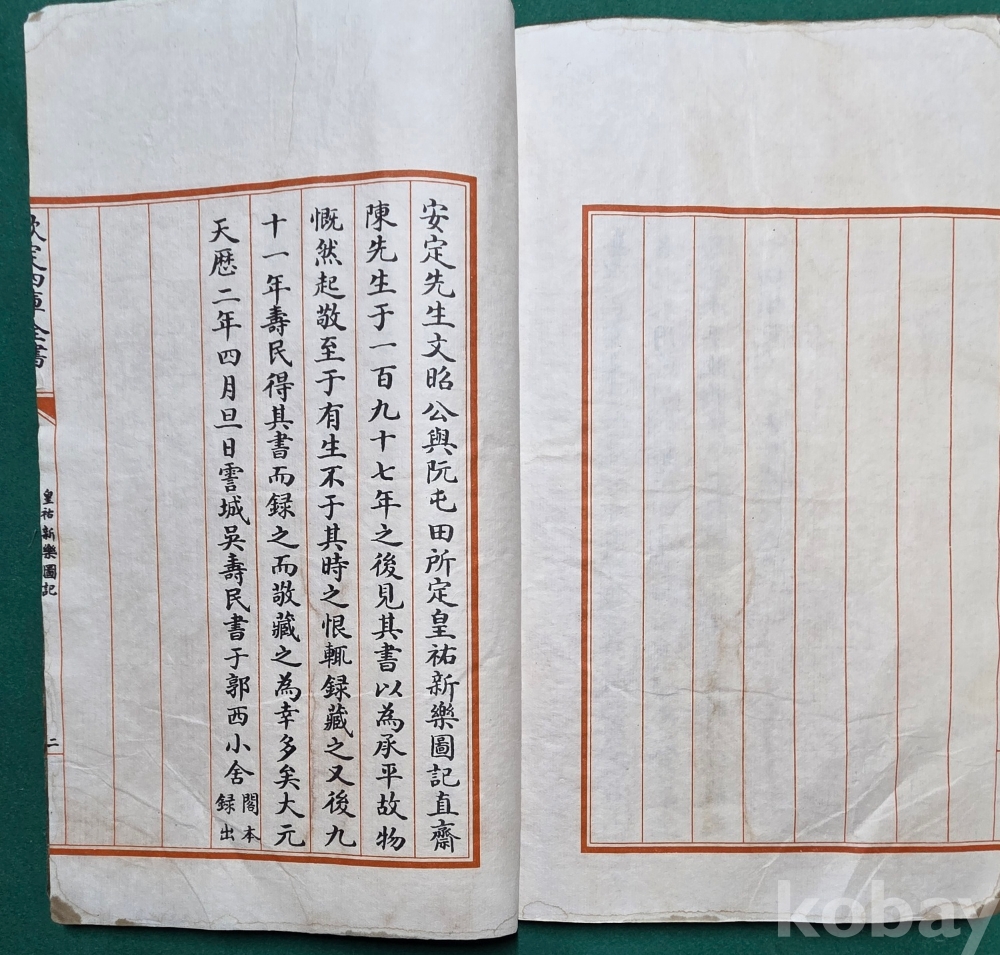 安定先生文昭公與阮屯田所定皇祐新樂圖記直齋
陳先生于一百九十七年之後見其書以為承平故物
慨然起敬至于有生不于其時之恨輒録藏之又後九
十一年壽民得其書而録之而敬藏之為幸多矣大元
天厯二年四月旦日霅城吳壽民書于郭西小舍
閣本
録出
欽定四庫全書
皇祐新樂圖記
二
kobay